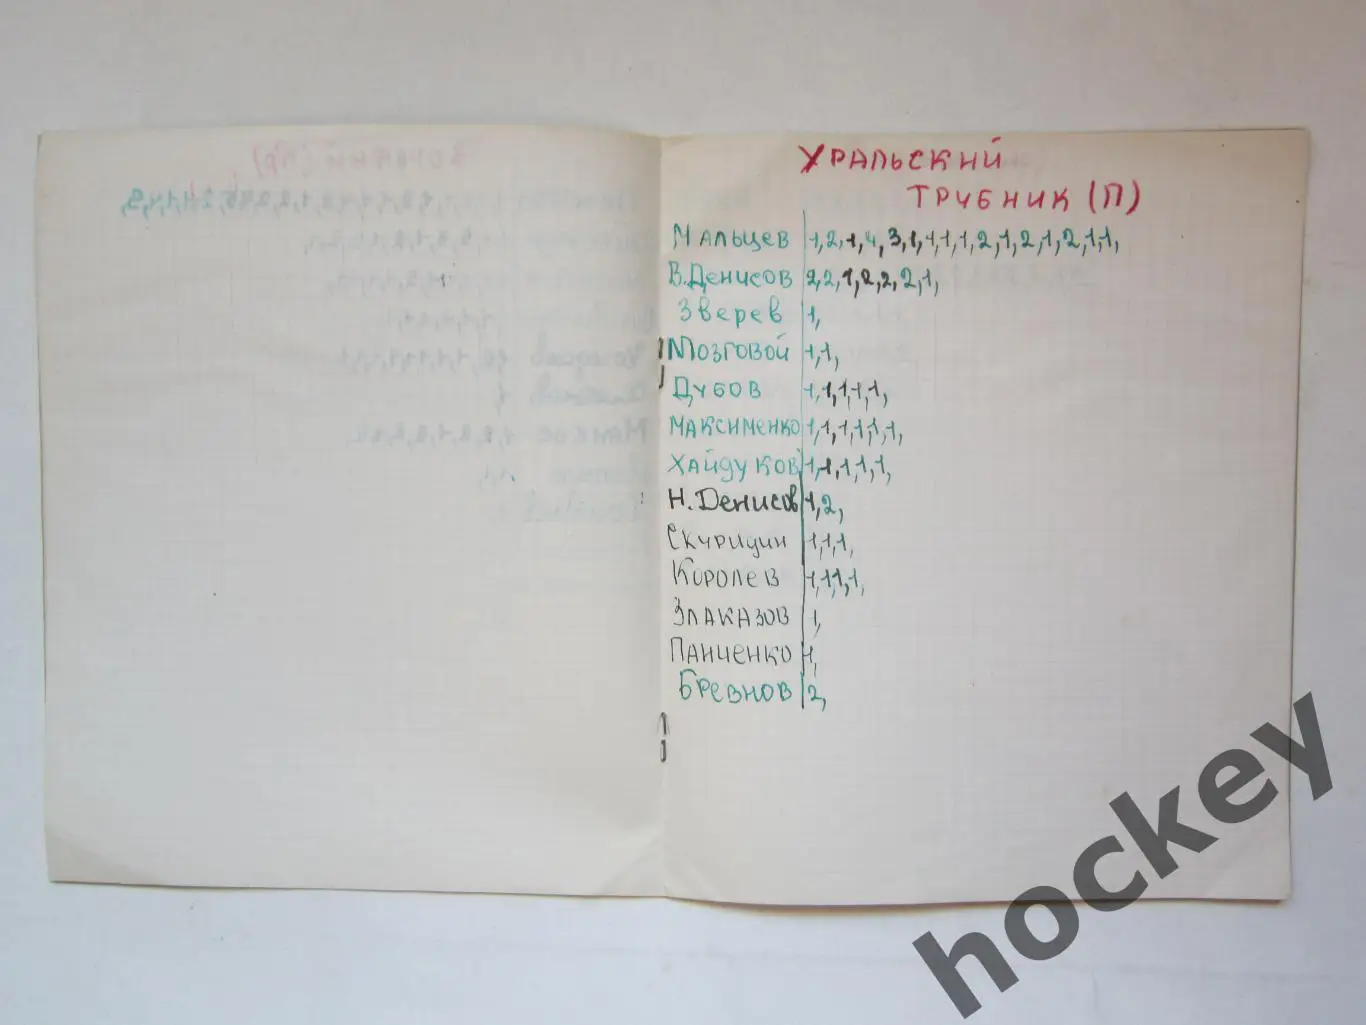 УРАЛЬСКИЙ
ТРУБНИК (П)
Мальцев 1,2,1,4,3,1,1,1,1,2,1,2,1,2,1,1,
В.Денисов 2,2,1,2,2,2,1,
Зверев 1,
Мозговой 1,1,
Дубов 1,1,1,1,1,
Максименко 1,1,1,1,1,1,
Хайдуков 1,1,1,1,1,
Н.Денисов 1,2,
Скуридин 1,1,1,
Королев 1,1,1,1,
Злаказов 1,
Панченко 1,
Бревнов 2,
hockey